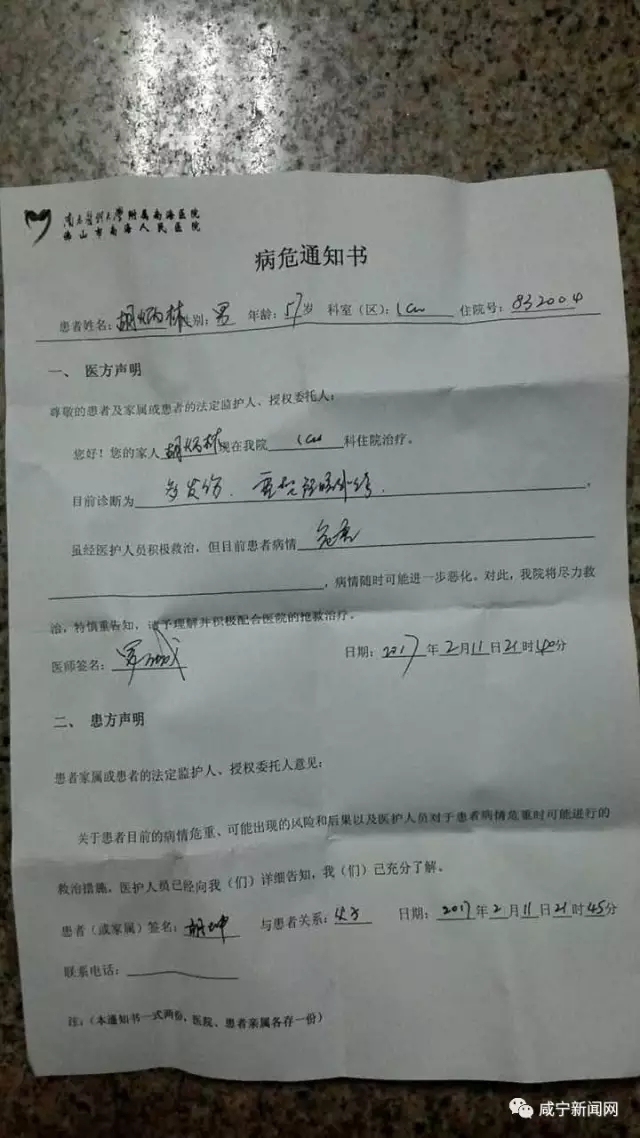 南方医科大学附属南海医院
佛山市南海人民医院
病危通知书
患者姓名：胡炳林 性别：男 年龄：57岁 科室（区）：icu 住院号：832004
一、 医方声明
尊敬的患者及家属或患者的法定监护人、授权委托人：
您好！您的家人胡炳林现在我院 icu 科住院治疗。
目前诊断为 多发伤、重型颅脑外伤 ，
虽经医护人员积极救治，但目前患者病情 危重
，病情随时可能进一步恶化。对此，我院将尽力救
治，特慎重告知，请予理解并积极配合医院的抢救治疗。
医师签名： 日期：2017年2月11日21时40分
二、 患方声明
患者家属或患者的法定监护人、授权委托人意见：
关于患者目前的病情危重、可能出现的风险和后果以及医护人员对于患者病情危重时可能进行的
救治措施，医护人员已经向我（们）详细告知，我（们）己充分了解。
患者（或家属）签名：胡坤 与患者关系：父子 日期：2017年2月11日21时45分
联系电话：
注：（本通知书一式两份，医院、患者亲属各存一份）
咸宁新闻网